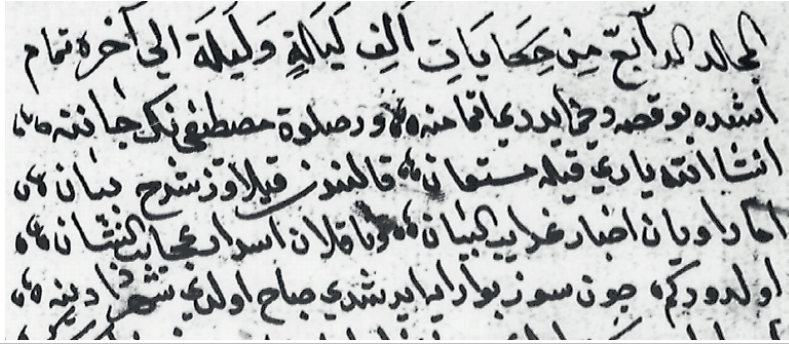 المجالد الرابع مِن حِكايَاتِ اَلفِ لَيَالَةٍ وَلَيلَة الي آخره تمام
اشده بو قصه دخي ايردي اتمامنه ورصلوة مصطفى نك جاننه
انشا الله ياري قيله مستعان قالندن قيلاوز شرح بيان
اما راويان اخبار غرايب البيان وناقلان اسرار عجايب النشان
اولدور كم چون سوز بوارايه ايرشدي صباح اولدي شهرزادينه